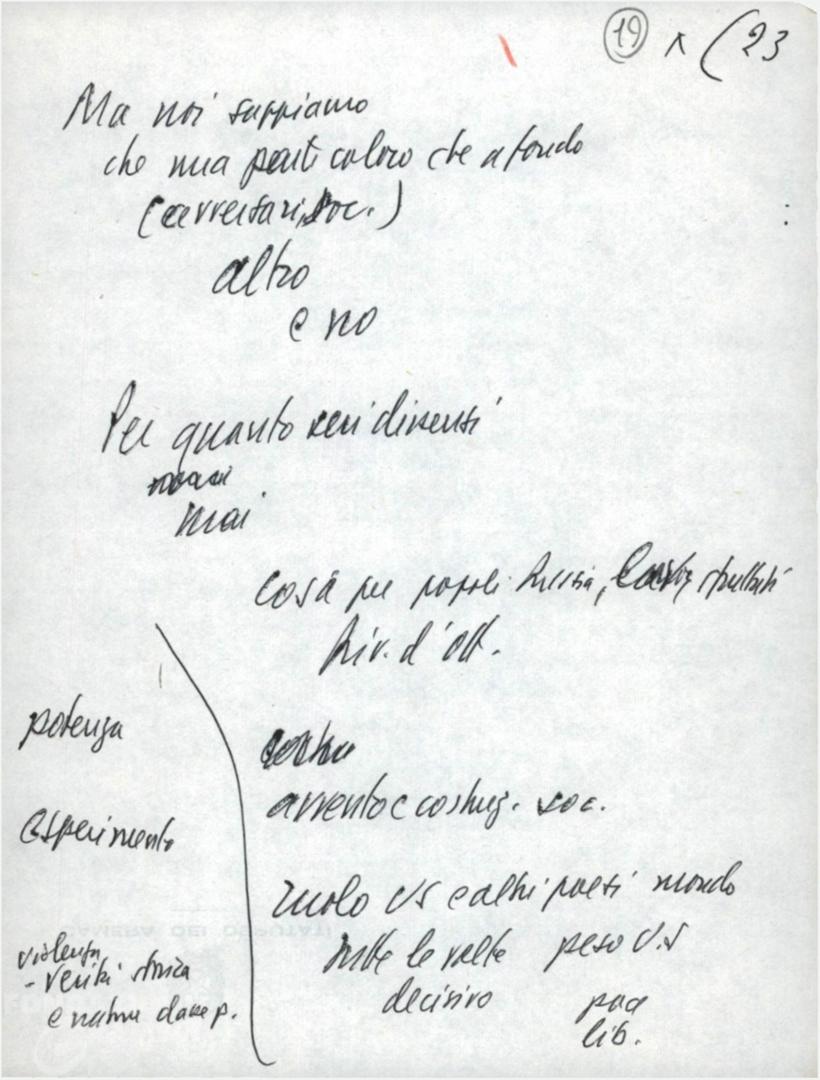 19 (23
Ma noi sappiamo
che mia parti coloro che a fondo
(avversari, soc.)
altro
e no
Per quanto diversi
mai
cosa per popoli Russia, sfruttati
Riv. d'Ott.
potenza
avvento e costruz. soc.
esperimento
ruolo US e altri paesi mondo
tutte le volte peso U.S
decisivo pace
lib.
violenza
- verità storica
e natura classe p.
CAMERA DEI DEPUTATI